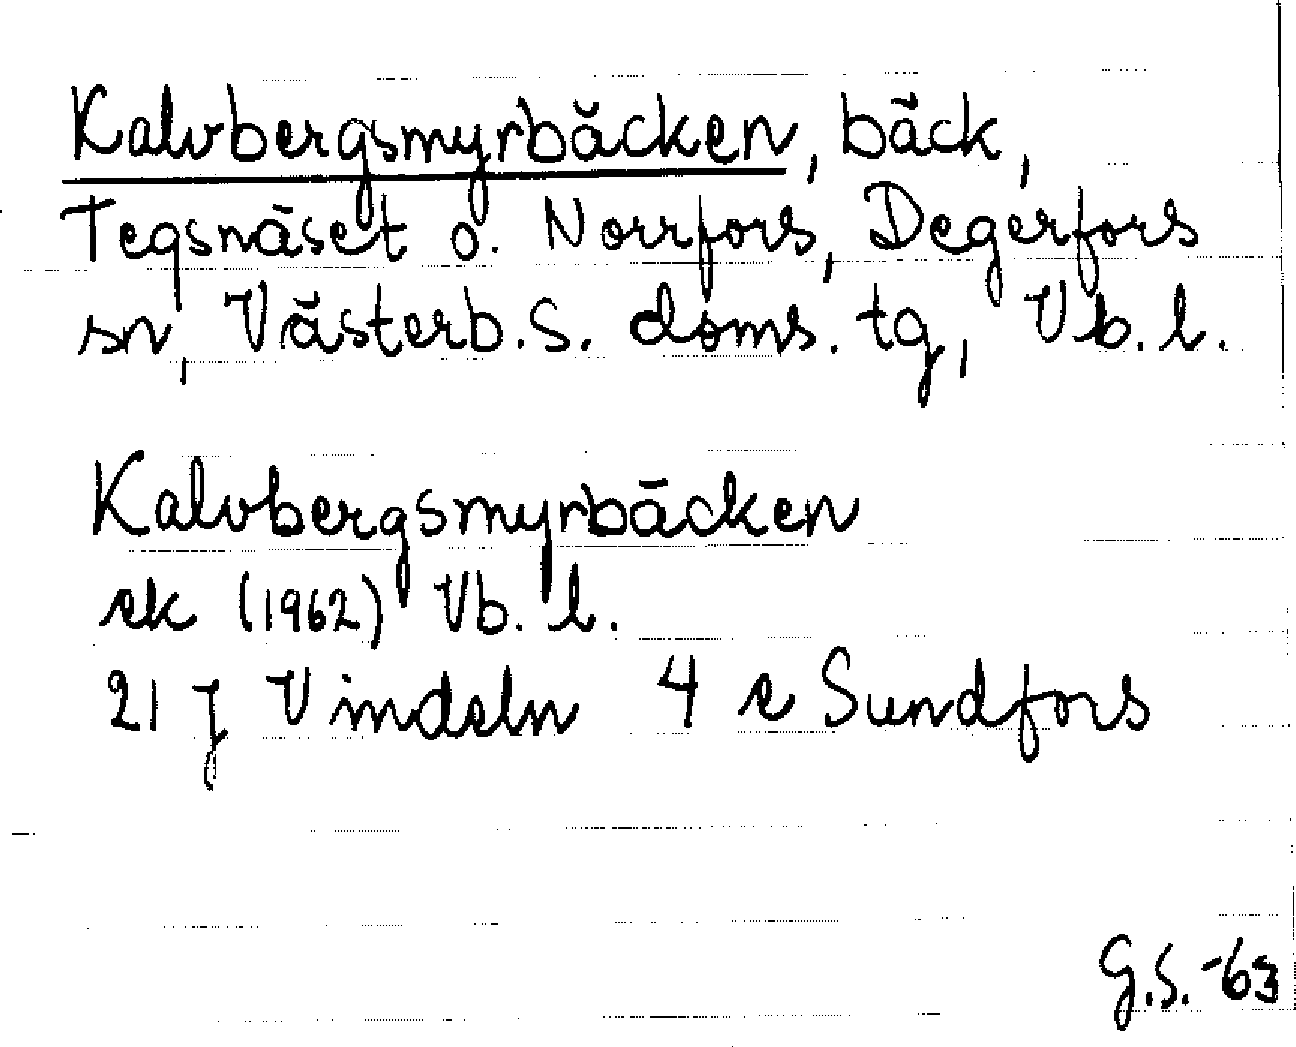 Kalvbergsmyrbäcken, bäck,
Tegsnäset o. Norrfors, Degerfors
sn, Västerb. S. doms. tg, Vb. l.
Kalvbergsmyrbäcken
ek (1962) Vb. l.
21 J Vindeln 4 e Sundfors
G.S. -63